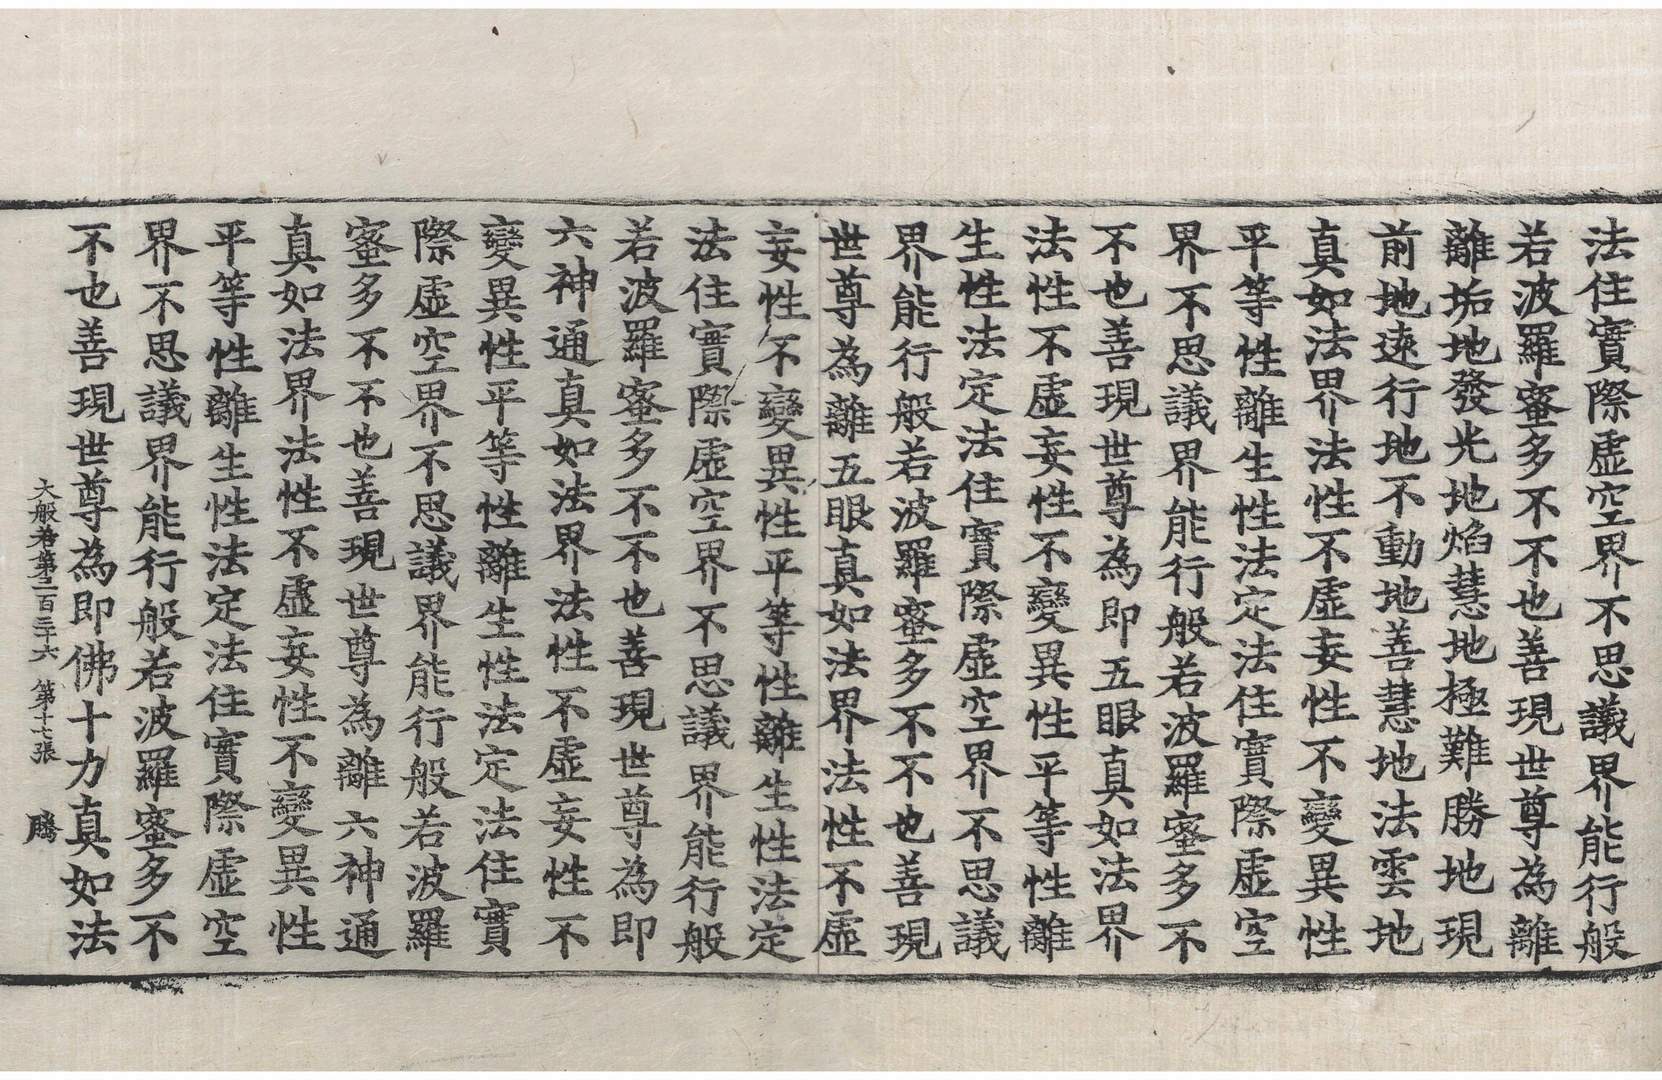 法住實際虛空界不思議界能行般
若波羅蜜多不不也善現世尊為離
離垢地發光地焰慧地極難勝地現
前地遠行地不動地善慧地法雲地
真如法界法性不虛妄性不變異性
平等性離生性法定法住實際虛空
界不思議界能行般若波羅蜜多不
不也善現世尊為即五眼真如法界
法性不虛妄性不變異性平等性離
生性法定法住實際虛空界不思議
界能行般若波羅蜜多不不也善現
世尊為離五眼真如法界法性不虛
妄性不變異性平等性離生性法定
法住實際虛空界不思議界能行般
若波羅蜜多不不也善現世尊為即
六神通真如法界法性不虛妄性不
變異性平等性離生性法定法住實
際虛空界不思議界能行般若波羅
蜜多不不也善現世尊為離六神通
真如法界法性不虛妄性不變異性
平等性離生性法定法住實際虛空
界不思議界能行般若波羅蜜多不
不也善現世尊為即佛十力真如法
大般若第三百三十六 第十七張 騰